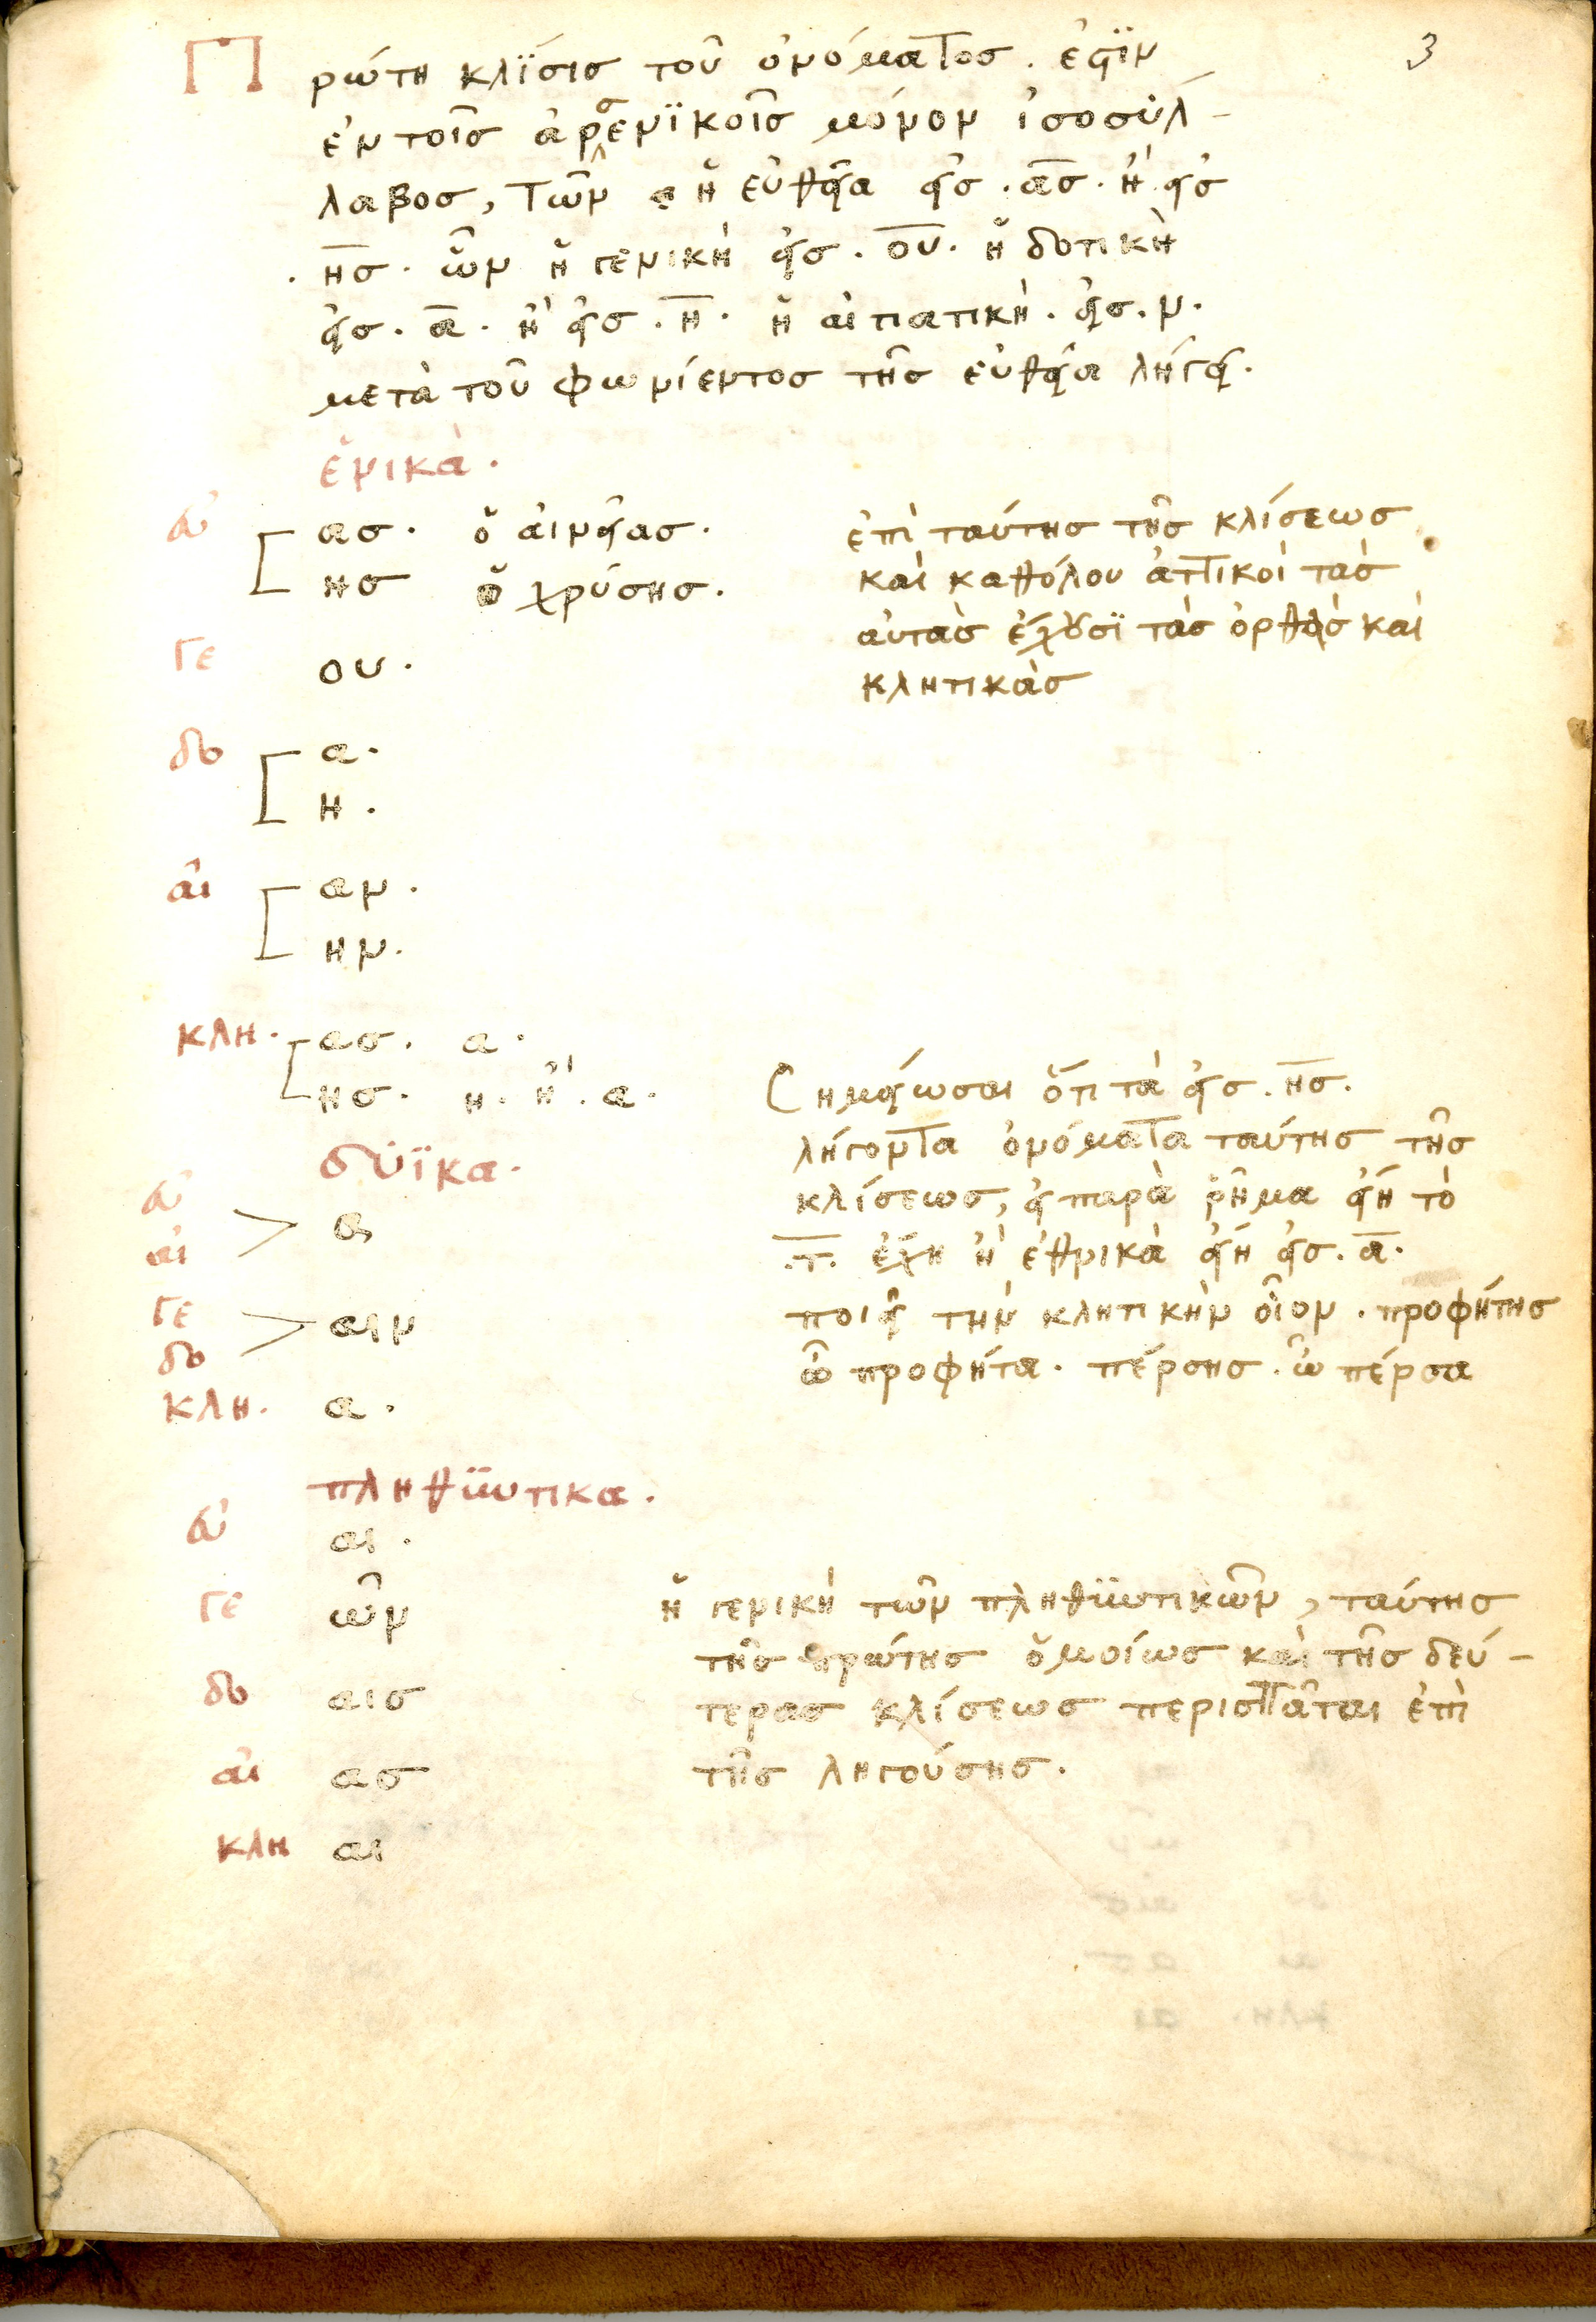 3
Πρώτη κλΐσισ τοῦ ὀνόματος. ἐστϊν
ἐν τοῖσ ἀρσενϊκοῖσ μόνον ἰσοσύλ-
λαβοσ, τῶν ἡ εὐθεῖα εἰσ. ας. ἢ εἰσ
. ησ. ὧν ἡ γενικὴ εἰσ. ου. ἡ δοτικὴ
εἰσ. α. ἢ εἰσ. η. ἡ αἰτιατικὴ. εἰσ. ν.
μετὰ τοῦ φωνίεντοσ τῆσ εὐθεῖα λήγει.
ἑνικὰ.
εὐ ασ. ὁ αἰνείασ.
ησ ὁ χρύσησ.
ἐπὶ ταύτησ τῆσ κλίσεωσ
καὶ καθόλου ἀττικοὶ τὰσ
αὐτὰσ ἔχουσϊ τὰσ ὀρθὰσ καὶ
κλητικὰσ
γε ου.
δο α.
η.
αἰ αν.
ην.
κλη. ασ. α.
ησ. η. ἢ. α.
Σημείωσαι ὅτι τὰ εἰσ. ησ.
λήγοντα ὀνόματα ταύτησ τῆσ
κλίσεωσ, εἰ παρὰ ῥῆμα εἴη τὸ
.τ. ἔχη ἢ ἐθνικὰ εἴη εἰσ. α.
ποιεῖ τὴν κλητικὴν οἷον. προφήτησ
ὦ προφήτα. πέρσησ. ὦ πέρσα
δυϊκα.
εὐ
αἰ α
γε
δο αιν
κλη. α.
πληθϋντικα.
εὐ αι.
γε ῶν
δο αισ
αἰ ασ
κλη αι
ἡ γενικὴ τῶν πληθϋντικῶν, ταύτησ
τῆσ πρώτησ ὁμοίωσ καὶ τῆσ δευ-
τερασ κλίσεωσ περισπᾶται ἐπὶ
τῆσ ληγούσησ.